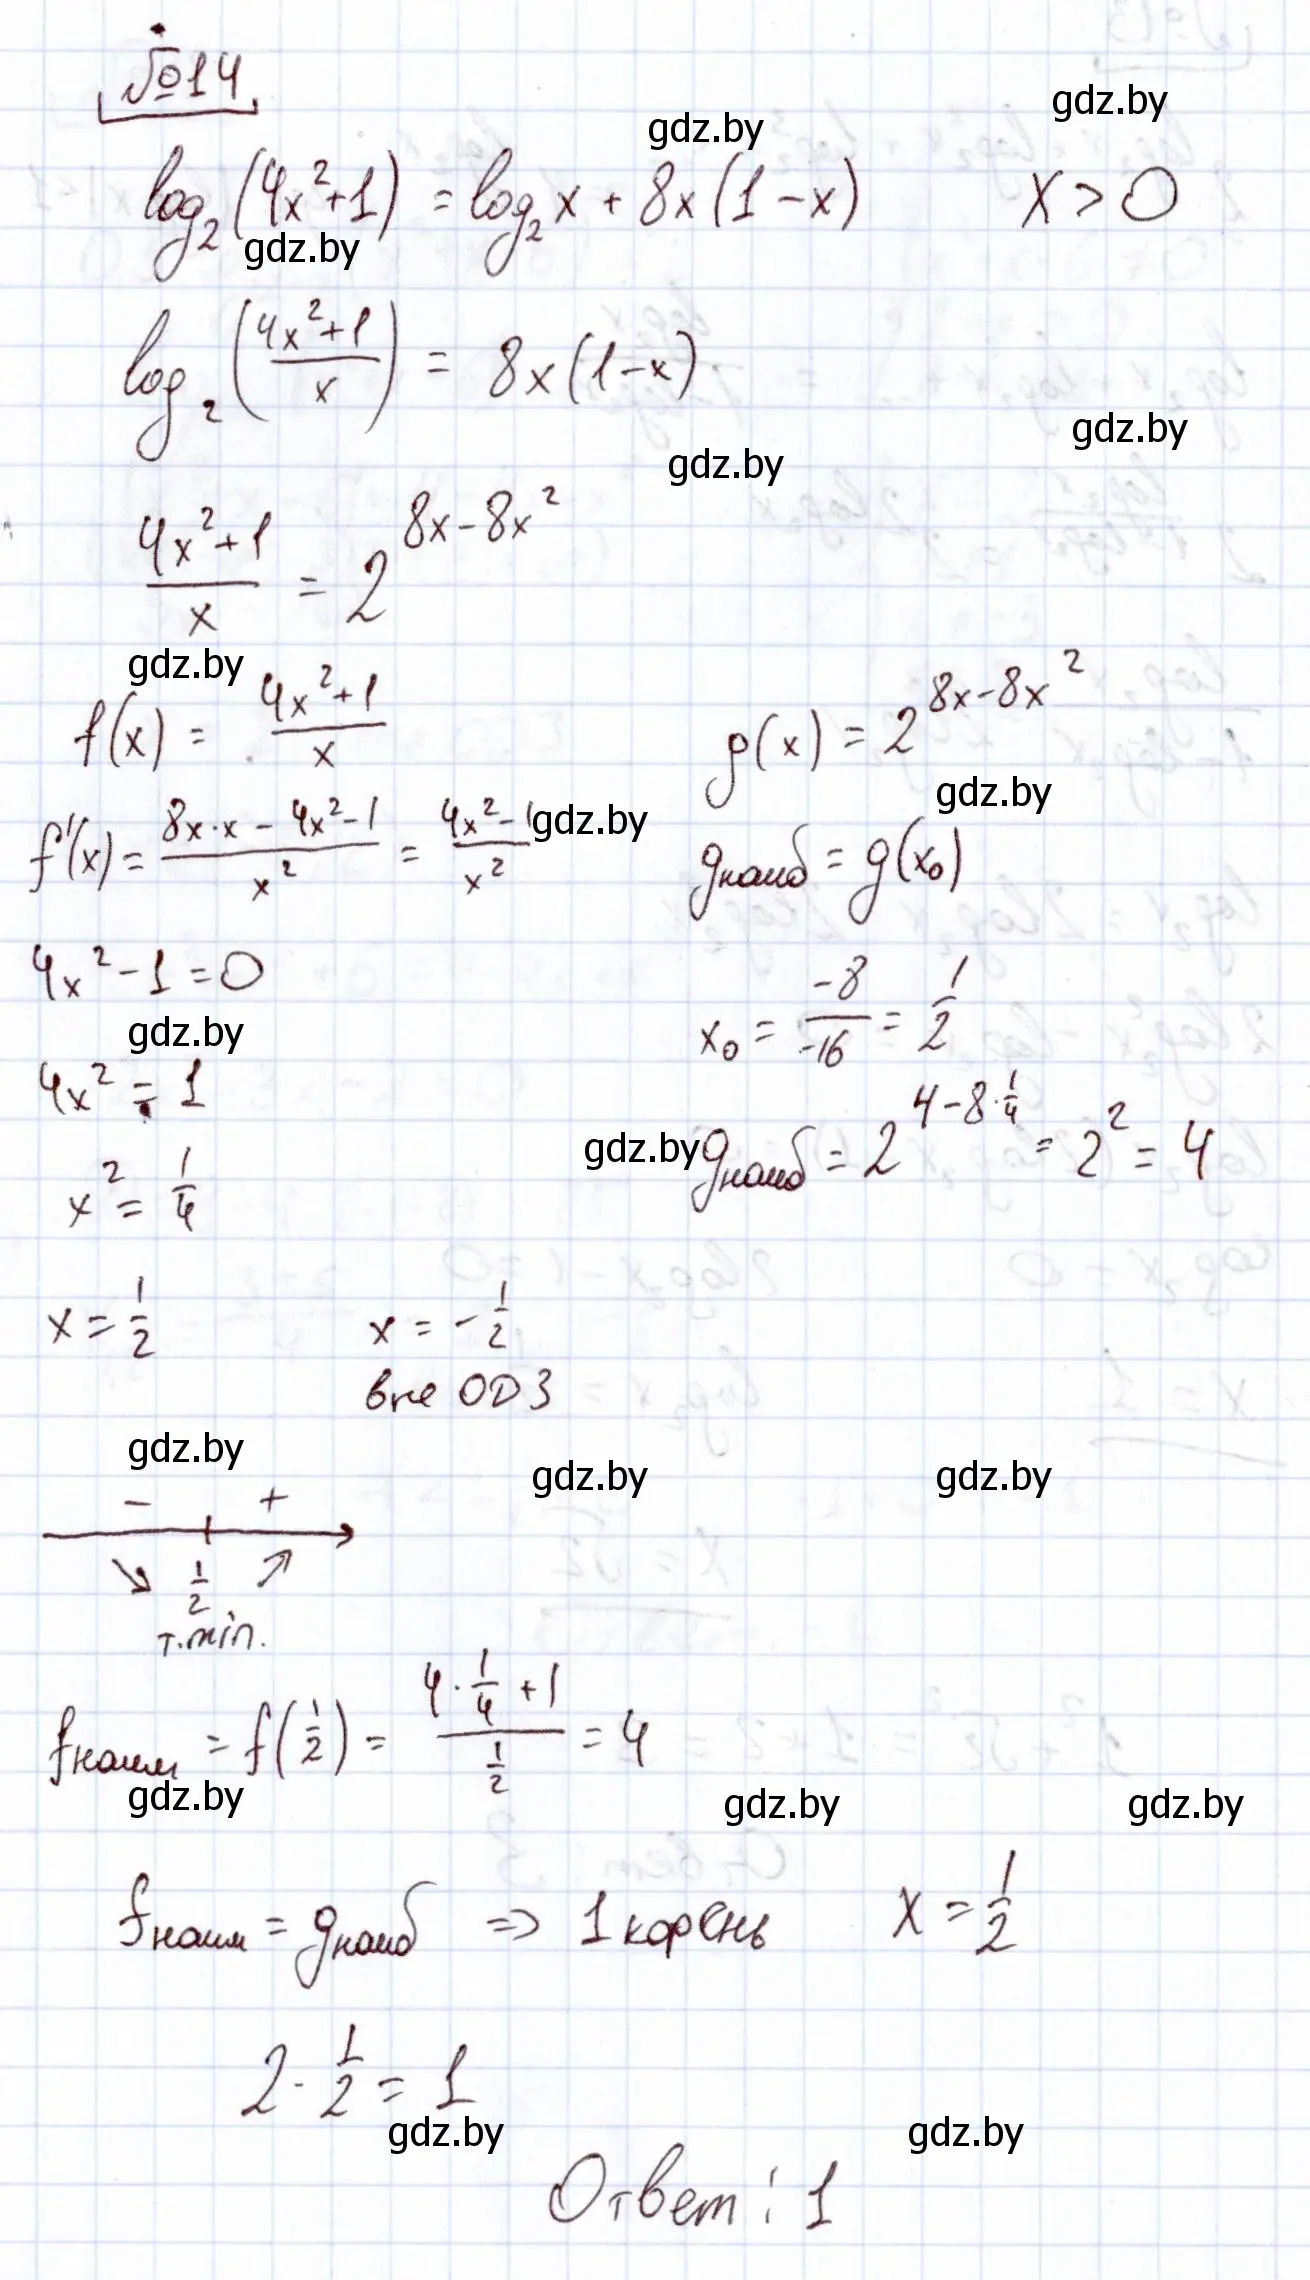 №14
gdz.by
gdz.by
log₂(4x²+1) = log₂x + 8x(1-x)    x > 0
gdz.by
log₂((4x²+1)/x) = 8x(1-x)
gdz.by
gdz.by
(4x²+1)/x = 2^(8x-8x²)
gdz.by
f(x) = (4x²+1)/x    g(x) = 2^(8x-8x²)
gdz.by
gdz.by
f'(x) = (8x·x - 4x²-1)/x² = (4x²-1)/x²    gнаиб = g(x₀)
4x²-1=0    x₀ = -8/-16 = 1/2
gdz.by
4x² = 1
gdz.by
gнаиб = 2^(4-8·1/4) = 2² = 4
x² = 1/4
x = 1/2    x = -1/2
вне ОДЗ
gdz.by
gdz.by
gdz.by
- +
1/2
т.min.
fнаим = f(1/2) = (4·1/4+1)/(1/2) = 4
gdz.by
gdz.by
gdz.by
fнаим = gнаиб ⇒ 1 корень    x = 1/2
2·1/2 = 1
gdz.by
gdz.by
Ответ: 1